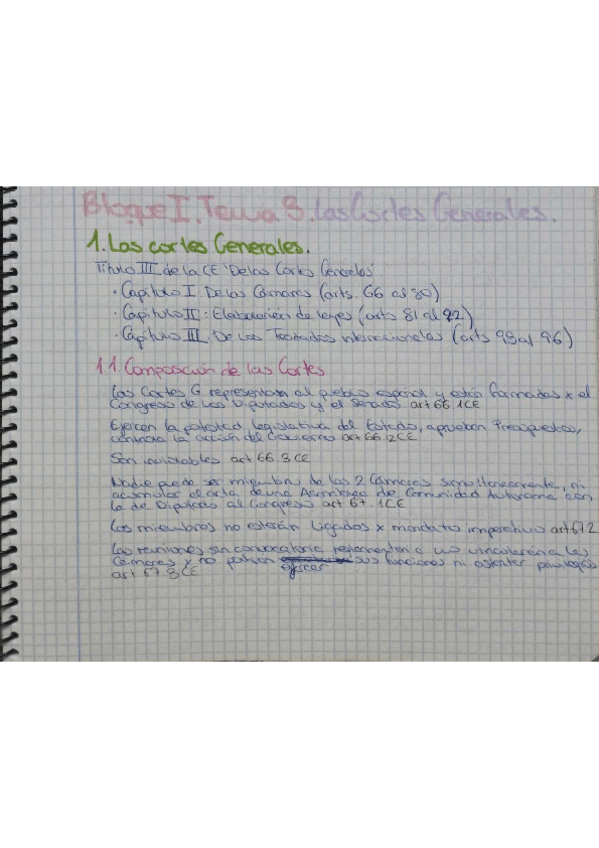 Bloque I. Tema 3. Las Cortes Generales.
1. Las cortes Generales.
Título III de la CE "De las Cortes Generales"
· Capítulo I. De las Cámaras (arts. 66 al 80)
· Capítulo II: Elaboración de leyes (arts 81 al 92)
· Capítulo III De los Tratados internacionales (arts 93 al 96)
1.1. Composición de las Cortes
Las Cortes G representan al pueblo español y están formadas x el
Congreso de los Diputados y el Senado art 66.1CE
Ejercen la potestad legislativa del Estado, aprueban Presupuestos,
controla la acción del Gobierno art 66.2CE
Son inviolables art 66.3CE
Nadie puede ser miembro de las 2 Cámaras simultáneamente, ni
acumular el acta de una Asamblea de Comunidad Autónoma con
la de Diputado al Congreso art 67.1CE
Los miembros no estarán ligados x mandato imperativo art 67.2
Las reuniones sin convocatoria reglamentaria no vincularán a las
Cámaras y no podrán ejercer sus funciones ni ostentar privilegios
art 67.3CE